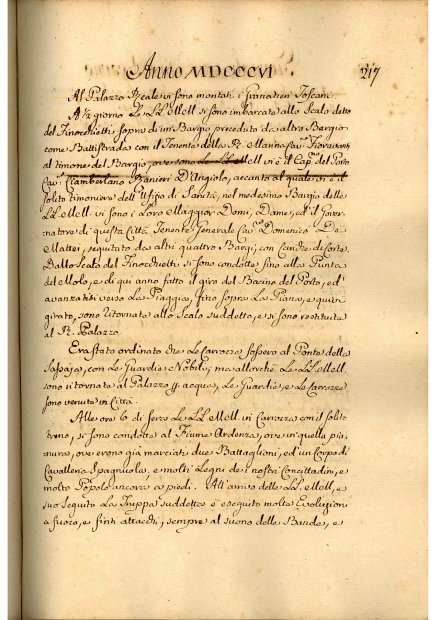 Anno MDCCCVI
217
Al Palazzo Reale vi sono montati i Granatieri Toscani.
A ½ giorno Le LL MM si sono imbarcate allo Scalo detto
del Finocchietti sopra di un Bargio preceduto da altro Bargio
come Battistrada con il Tenente della R. Marina Cav.
al timone del Bargio, ove sono Le LL MM vi è il Cap. del Porto
Cav. Ciamberlano Ranieri D'Angiolo, accanto al quale vi è il
solito timoniere dell'Ufizio di Sanità, nel medesimo Bargio delle
LL MM vi sono i Loro Maggior Domi, Dame, ed il Gover-
natore di questa Città Tenente Generale Cav. Domenico De
Mattei, seguitato da altri quattro Borgi, con Cariche di Corte.
Dallo Scalo del Finocchietti si sono condotte fino alla Punta
del Molo, e di qui anno fatto il giro del Bacino del Porto, ed
avanzatisi verso La Piaggia, fino sopra La Piana, e quivi
girato, sono ritornate allo Scalo suddetto, e si sono restituite
al R. Palazzo.
Era stato ordinato che Le Carrozze fossero al Ponte della
Sassaja, con Le Guardie Nobili; ma allorchè Le LL MM
sono ritornate al Palazzo p acqua, Le Guardie, e Le Carrozze
sono venute in Città.
Alle ore 6 di sera Le LL MM in Carrozza con il solito
treno, si sono condotte al Fiume Ardenza, ove in quella pia-
nura, ove erono gia marciati due Battaglioni, ed un Corpo di
Cavalleria Spagniuola, e molti Legni de nostri Concittadini, e
molto Popolo ancora a piedi. All'arrivo delle LL MM, e
suo seguito La Truppa suddetta à eseguito molte Evoluzioni
a fuoco, e finti attacchi, sempre al suono delle Bande, e